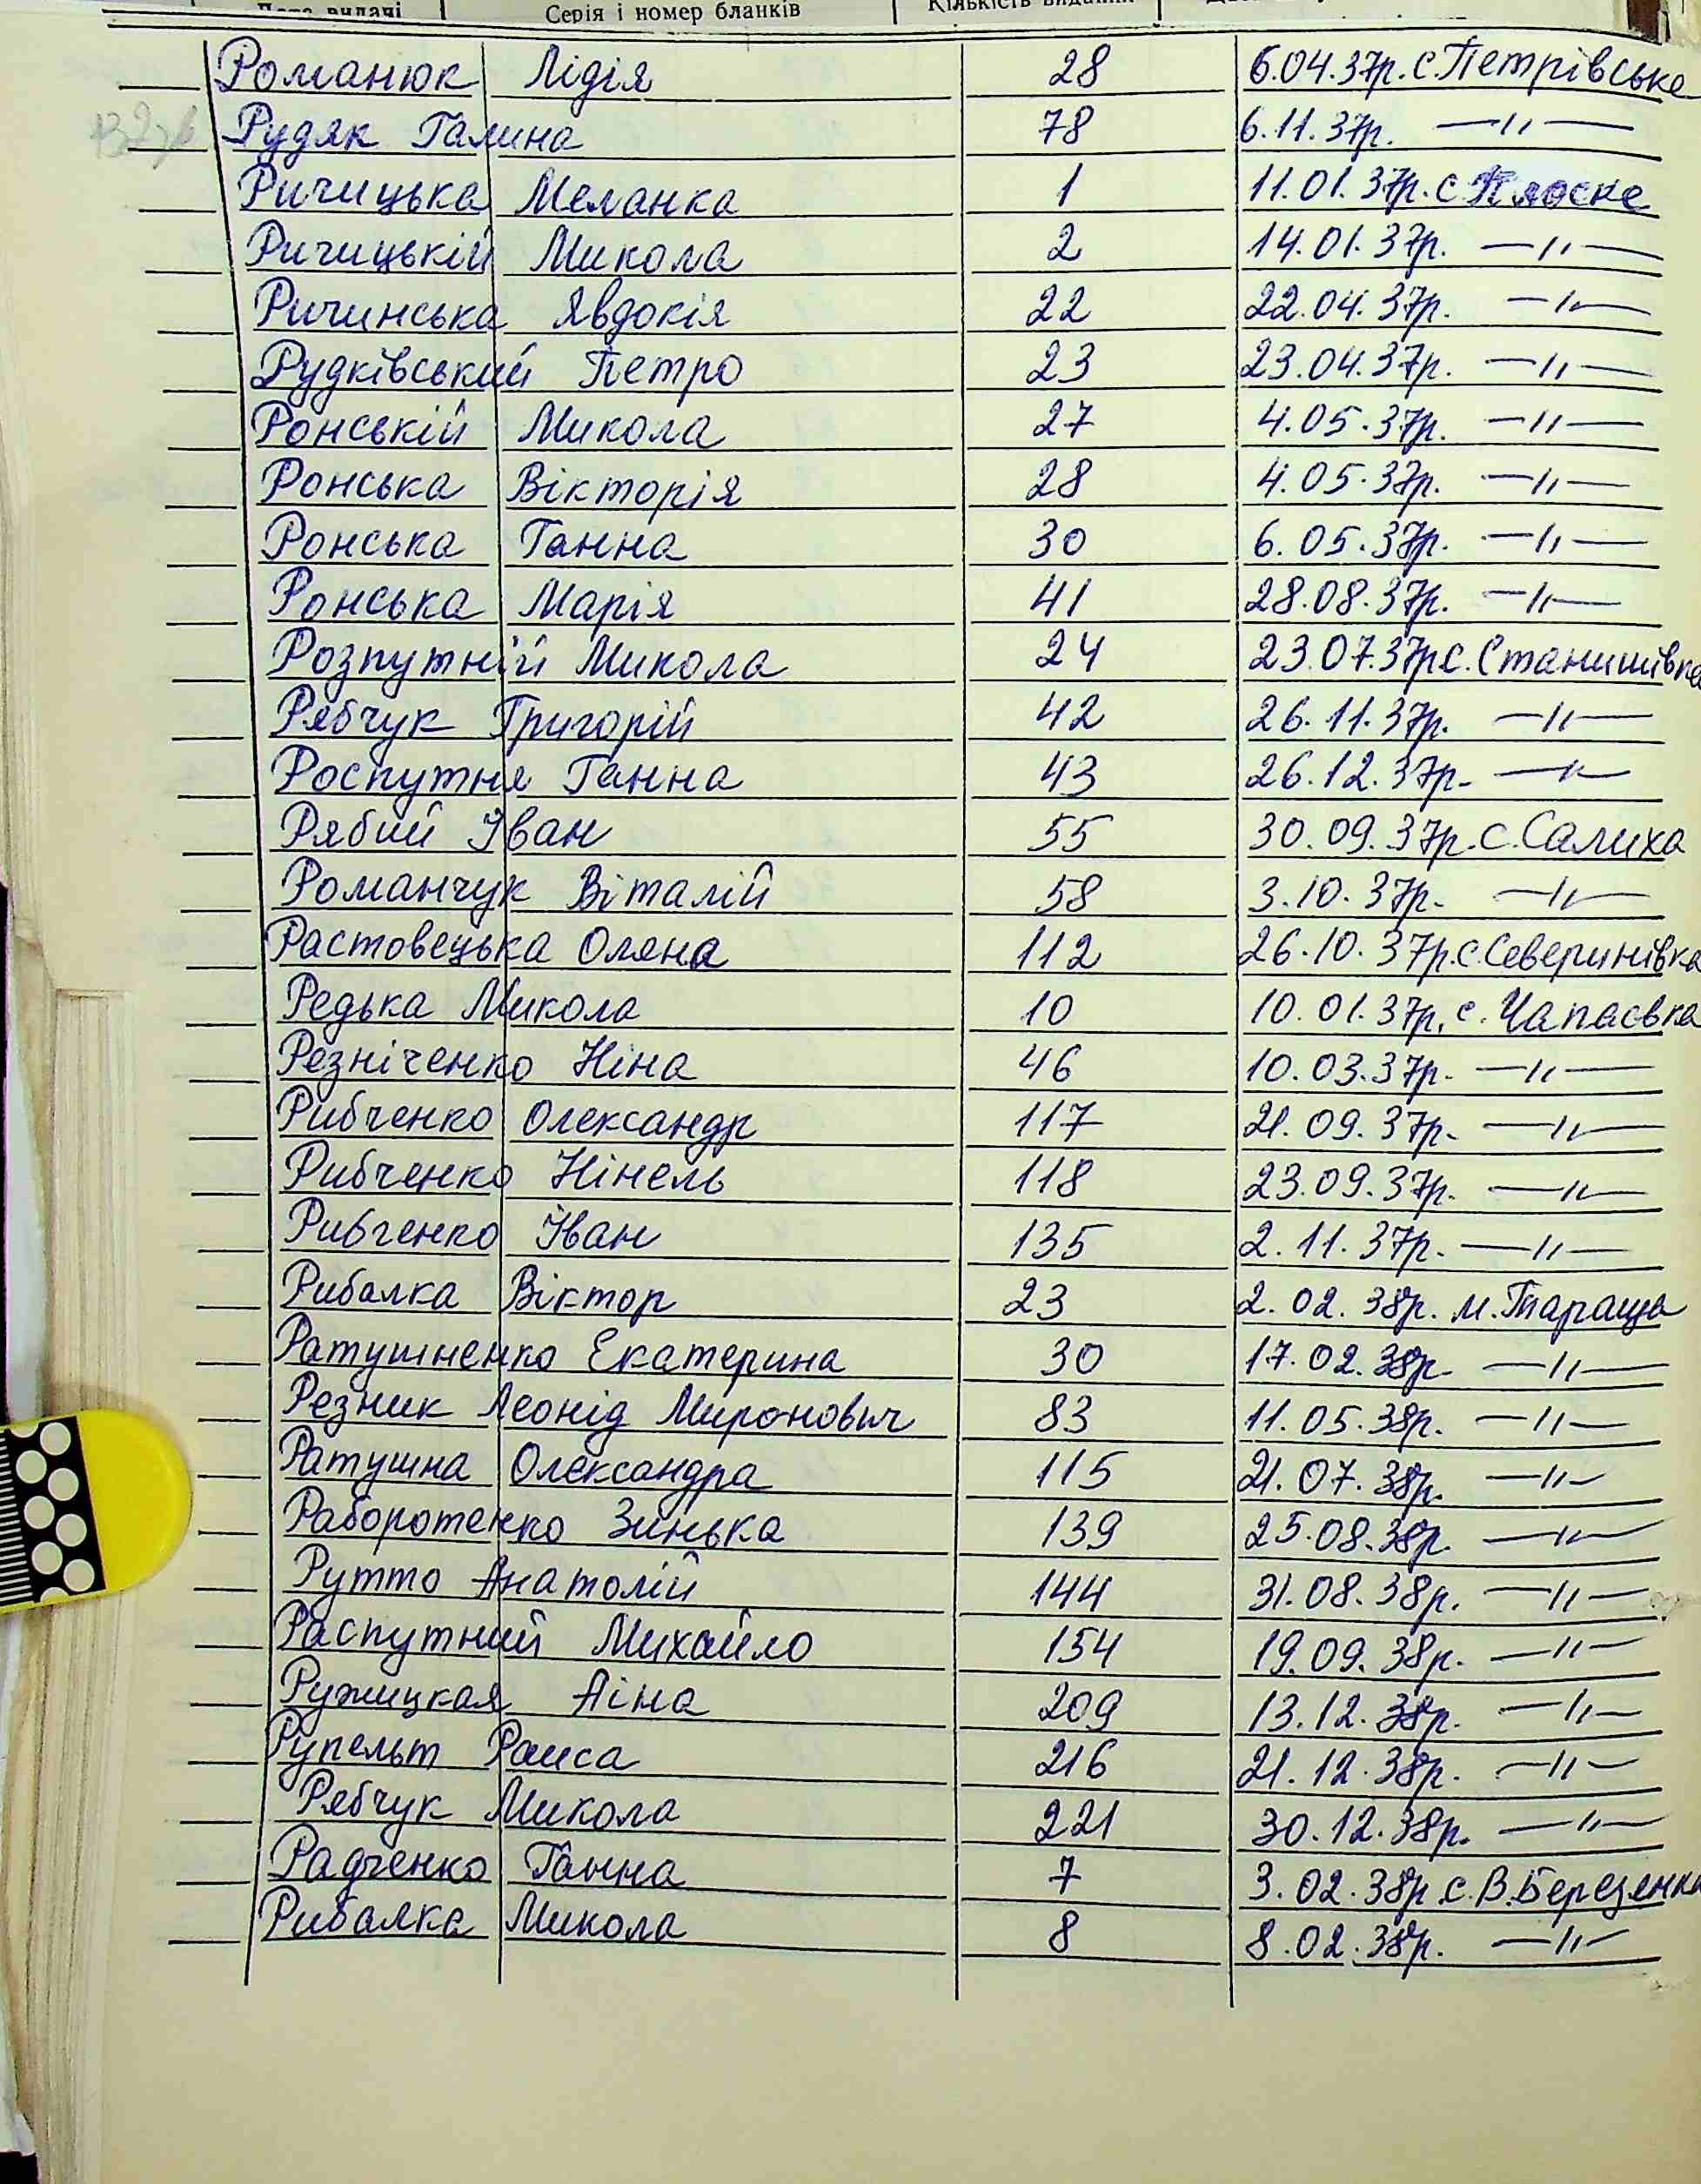 Серія і номер бланків
Романюк Лідія 28 6.04.37р. с. Петрівське
Рудяк Галина 78 6.11.37р. —〃—
Ричицька Меланка 1 11.01.37р. с. Плоске
Ричицькій Микола 2 14.01.37р. —〃—
Ричинська Явдокія 22 22.04.37р. —〃—
Рудківський Петро 23 23.04.37р. —〃—
Ронській Микола 27 4.05.37р. —〃—
Ронська Вікторія 28 4.05.37р. —〃—
Ронська Ганна 30 6.05.37р. —〃—
Ронська Марія 41 28.08.37р. —〃—
Розпутній Микола 24 23.07.37р с. Станишівка
Рябчук Григорій 42 26.11.37р. —〃—
Роспутня Ганна 43 26.12.37р. —〃—
Рябий Іван 55 30.09.37р. с. Салиха
Романчук Віталій 58 3.10.37р. —〃—
Растовецька Оляна 112 26.10.37р. с. Северинівка
Редька Микола 10 10.01.37р. с. Чапаєвка
Резніченко Ніна 46 10.03.37р. —〃—
Рибченко Олександр 117 21.09.37р. —〃—
Рибченко Нінель 118 23.09.37р. —〃—
Рибченко Іван 135 2.11.37р. —〃—
Рибалка Віктор 23 2.02.38р. м. Тараща
Ратушненко Екатерина 30 17.02.38р. —〃—
Резник Леонід Миронович 83 11.05.38р. —〃—
Ратушна Олександра 115 21.07.38р. —〃—
Раборотенко Зинька 139 25.08.38р. —〃—
Рутто Анатолій 144 31.08.38р. —〃—
Распутний Михайло 154 19.09.38р. —〃—
Ружицкая Аіна 209 13.12.38р. —〃—
Рупельт Раиса 216 21.12.38р. —〃—
Рябчук Микола 221 30.12.38р. —〃—
Радченко Ганна 7 3.02.38р с. В. Березянка
Рибалка Микола 8 8.02.38р. —〃—